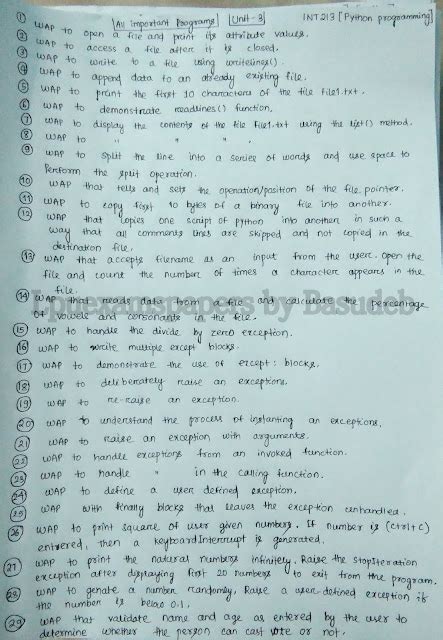 [All Important Programs] [Unit-3] INT213 [Python programming]
① WAP to open a file and print its attribute values.
② WAP to access a file after it is closed.
③ WAP to write to a file using writelines().
④ WAP to append data to an already existing file.
⑤ WAP to print the first 10 characters of the file file1.txt.
⑥ WAP to demonstrate readlines() function.
⑦ WAP to display the contents of the file file1.txt using the list() method.
⑧ WAP to " " " .
⑨ WAP to split the line into a series of words and use space to
perform the split operation.
⑩ WAP that tells and sets the operation/position of the file pointer.
⑪ WAP to copy first 10 bytes of a binary file into another.
⑫ WAP that copies one script of python into another in such a
way that all comments lines are skipped and not copied in the
destination file.
⑬ WAP that accepts filename as an input from the user. Open the
file and count the number of times a character appears in the
file.
⑭ WAP that reads data from a file and calculate the percentage
of vowels and consonants in the file.
Lpuexamspapers by Basudeb
⑮ WAP to handle the divide by zero exception.
⑯ WAP to write multiple except blocks.
⑰ WAP to demonstrate the use of except: blocks.
⑱ WAP to deliberately raise an exceptions.
⑲ WAP to re-raise an exception.
⑳ WAP to understand the process of instanting an exceptions.
㉑ WAP to raise an exception with arguments.
㉒ WAP to handle exceptions from an invoked function.
㉓ WAP to handle " in the calling function.
㉔ WAP to define a user defined exception.
㉕ WAP with finally blocks that leaves the exception unhandled.
㉖ WAP to print square of user given numbers. If number is (ctrl+c)
entrered, then a keyboardInterrupt is generated.
㉗ WAP to print the natural numbers infinitely. Raise the stopIteration
exception after displaying first 20 numbers to exit from the program.
㉘ WAP to genate a number randomly, Raise a user defined exception if
the number is below 0.1.
㉙ WAP that validate name and age as entered by the user to
determine whether the person can cast vote or not.